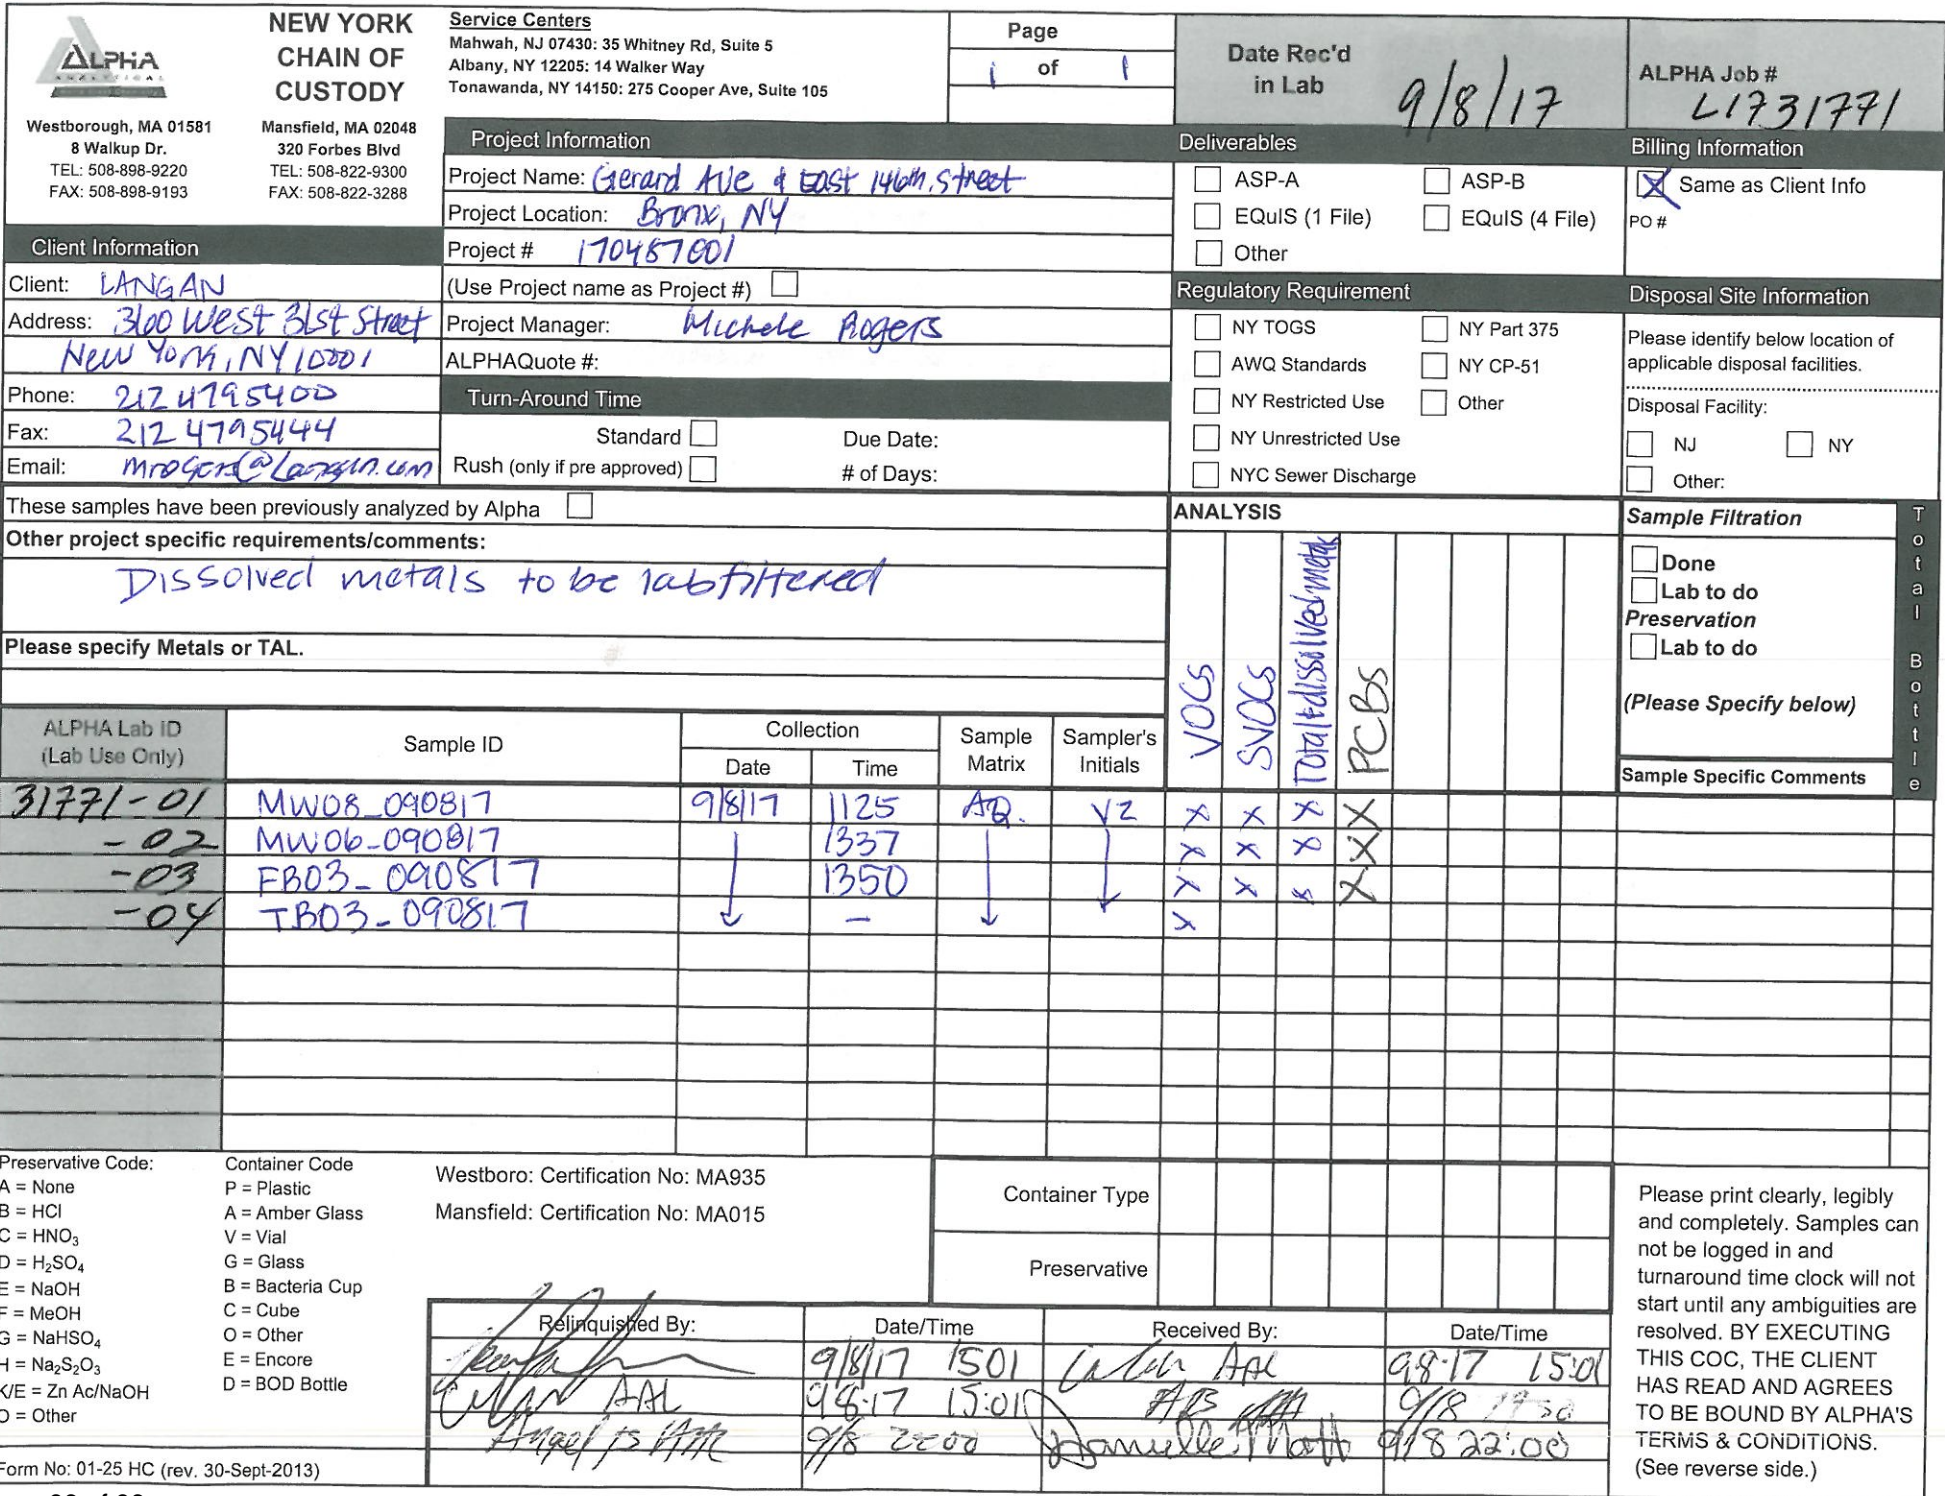 ALPHA
ANALYTICAL
NEW YORK
CHAIN OF
CUSTODY
Westborough, MA 01581
8 Walkup Dr.
TEL: 508-898-9220
FAX: 508-898-9193
Mansfield, MA 02048
320 Forbes Blvd
TEL: 508-822-9300
FAX: 508-822-3288
Service Centers
Mahwah, NJ 07430: 35 Whitney Rd, Suite 5
Albany, NY 12205: 14 Walker Way
Tonawanda, NY 14150: 275 Cooper Ave, Suite 105
Page
1 of 1
Date Rec'd
in Lab
9/8/17
ALPHA Job #
L1731771
Project Information
Project Name: Gerard Ave & East 146th street
Project Location: Bronx, NY
Project # 170487001
(Use Project name as Project #)
Project Manager: Michele Rogers
ALPHAQuote #:
Turn-Around Time
Standard
Due Date:
Rush (only if pre approved)
# of Days:
Client Information
Client: LANGAN
Address: 360 West 31st Street
New York, NY 10001
Phone: 212 4795400
Fax: 212 4795444
Email: mrogers@Langan.com
Deliverables
ASP-A
ASP-B
EQuIS (1 File)
EQuIS (4 File)
Other
Billing Information
X Same as Client Info
PO #
Regulatory Requirement
NY TOGS
NY Part 375
AWQ Standards
NY CP-51
NY Restricted Use
Other
NY Unrestricted Use
NYC Sewer Discharge
Disposal Site Information
Please identify below location of
applicable disposal facilities.
Disposal Facility:
NJ
NY
Other:
These samples have been previously analyzed by Alpha
Other project specific requirements/comments:
Dissolved metals to be lab filtered
Please specify Metals or TAL.
ANALYSIS
VOCs
SVOCs
Total & dissolved metals
PCBs
Sample Filtration
Done
Lab to do
Preservation
Lab to do
(Please Specify below)
Sample Specific Comments
Total Bottle
ALPHA Lab ID
(Lab Use Only)
Sample ID
Collection
Date
Time
Sample
Matrix
Sampler's
Initials
31771-01 MW08_090817 9/8/17 1125 AQ. YZ X X X X
-02 MW06-090817 1337 X X X X
-03 FB03_090817 1350 X X X X
-04 TB03_090817 – X
Preservative Code:
A = None
B = HCl
C = HNO3
D = H2SO4
E = NaOH
F = MeOH
G = NaHSO4
H = Na2S2O3
K/E = Zn Ac/NaOH
O = Other
Container Code
P = Plastic
A = Amber Glass
V = Vial
G = Glass
B = Bacteria Cup
C = Cube
O = Other
E = Encore
D = BOD Bottle
Westboro: Certification No: MA935
Mansfield: Certification No: MA015
Container Type
Preservative
Relinquished By:
Date/Time
Received By:
Date/Time
9/8/17 1501 AAL 9-8-17 15:01
AAL 9-8-17 15:01 9/8
9/8 2200 Danielle Mott 9/8 22:00
Please print clearly, legibly
and completely. Samples can
not be logged in and
turnaround time clock will not
start until any ambiguities are
resolved. BY EXECUTING
THIS COC, THE CLIENT
HAS READ AND AGREES
TO BE BOUND BY ALPHA'S
TERMS & CONDITIONS.
(See reverse side.)
Form No: 01-25 HC (rev. 30-Sept-2013)